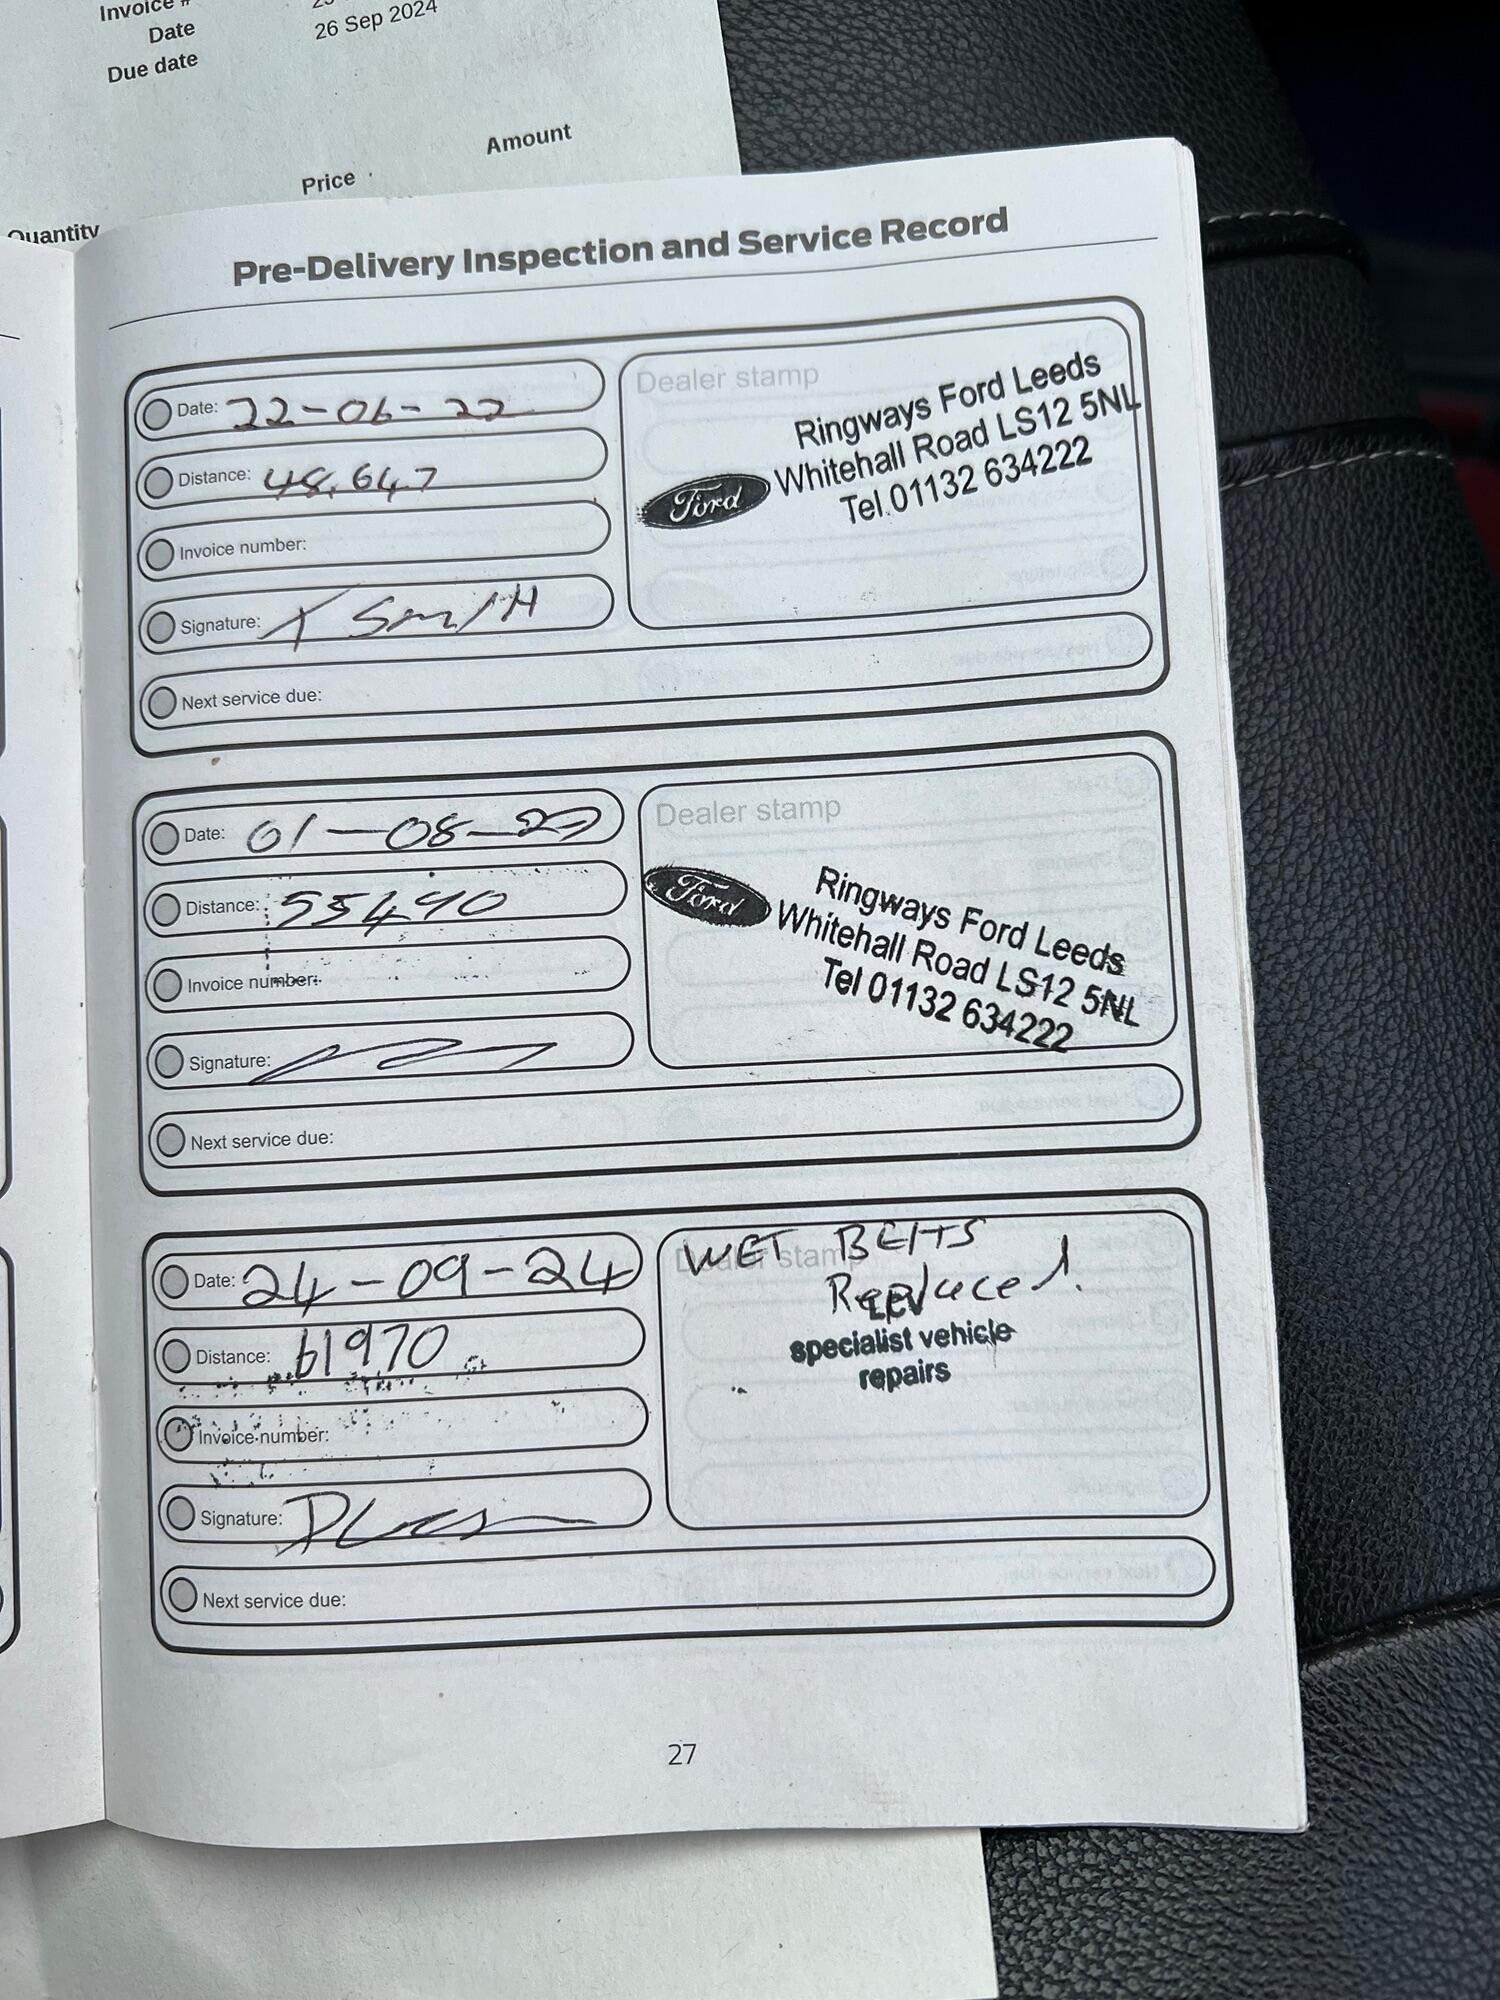 Invoice #
Date
26 Sep 2024
Due date
Amount
Price
Quantity
Pre-Delivery Inspection and Service Record
Date: 22-06-22
Distance: 48,647
Invoice number:
Signature: Smith
Next service due:
Dealer stamp
Ford
Ringways Ford Leeds
Whitehall Road LS12 5NL
Tel 01132 634222
Date: 01-08-23
Distance: 55490
Invoice number:
Signature:
Next service due:
Dealer stamp
Ford
Ringways Ford Leeds
Whitehall Road LS12 5NL
Tel 01132 634222
Date: 24-09-24
Distance: 61970
Invoice number:
Signature:
Next service due:
Dealer stamp
WET BElTS
Replaced.
specialist vehicle
repairs
27